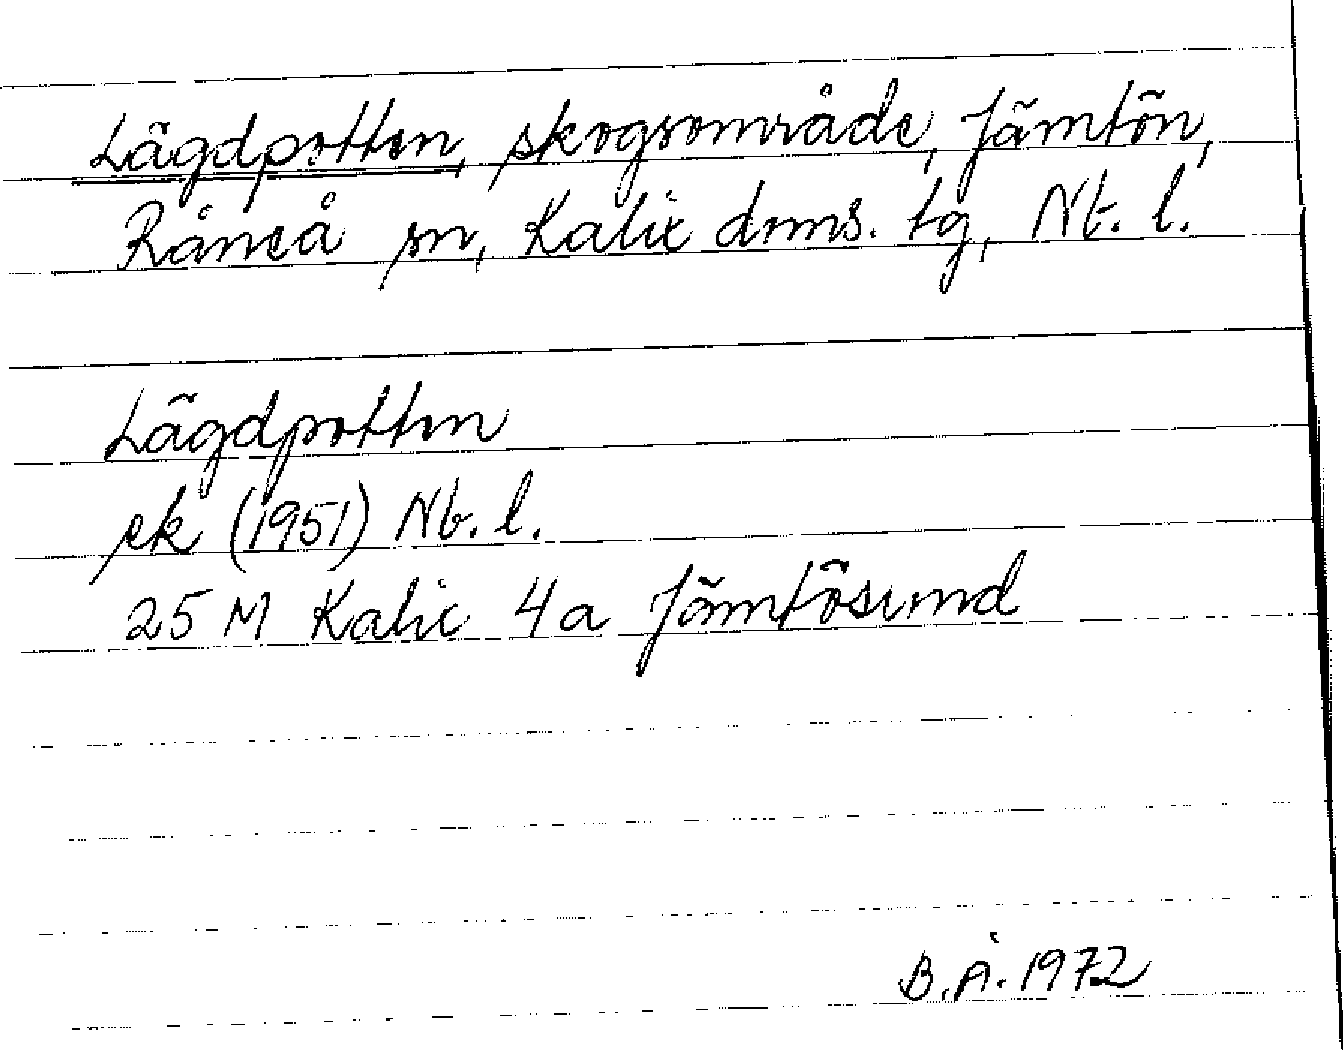 Lägdpotten, skogsområde, Jämtön,
Råneå sn, Kalix dms. tg, Nb. l.
Lägdpotten
ek (1951) Nb. l.
25 M Kalix 4a Jämtösund
B.Å. 1972